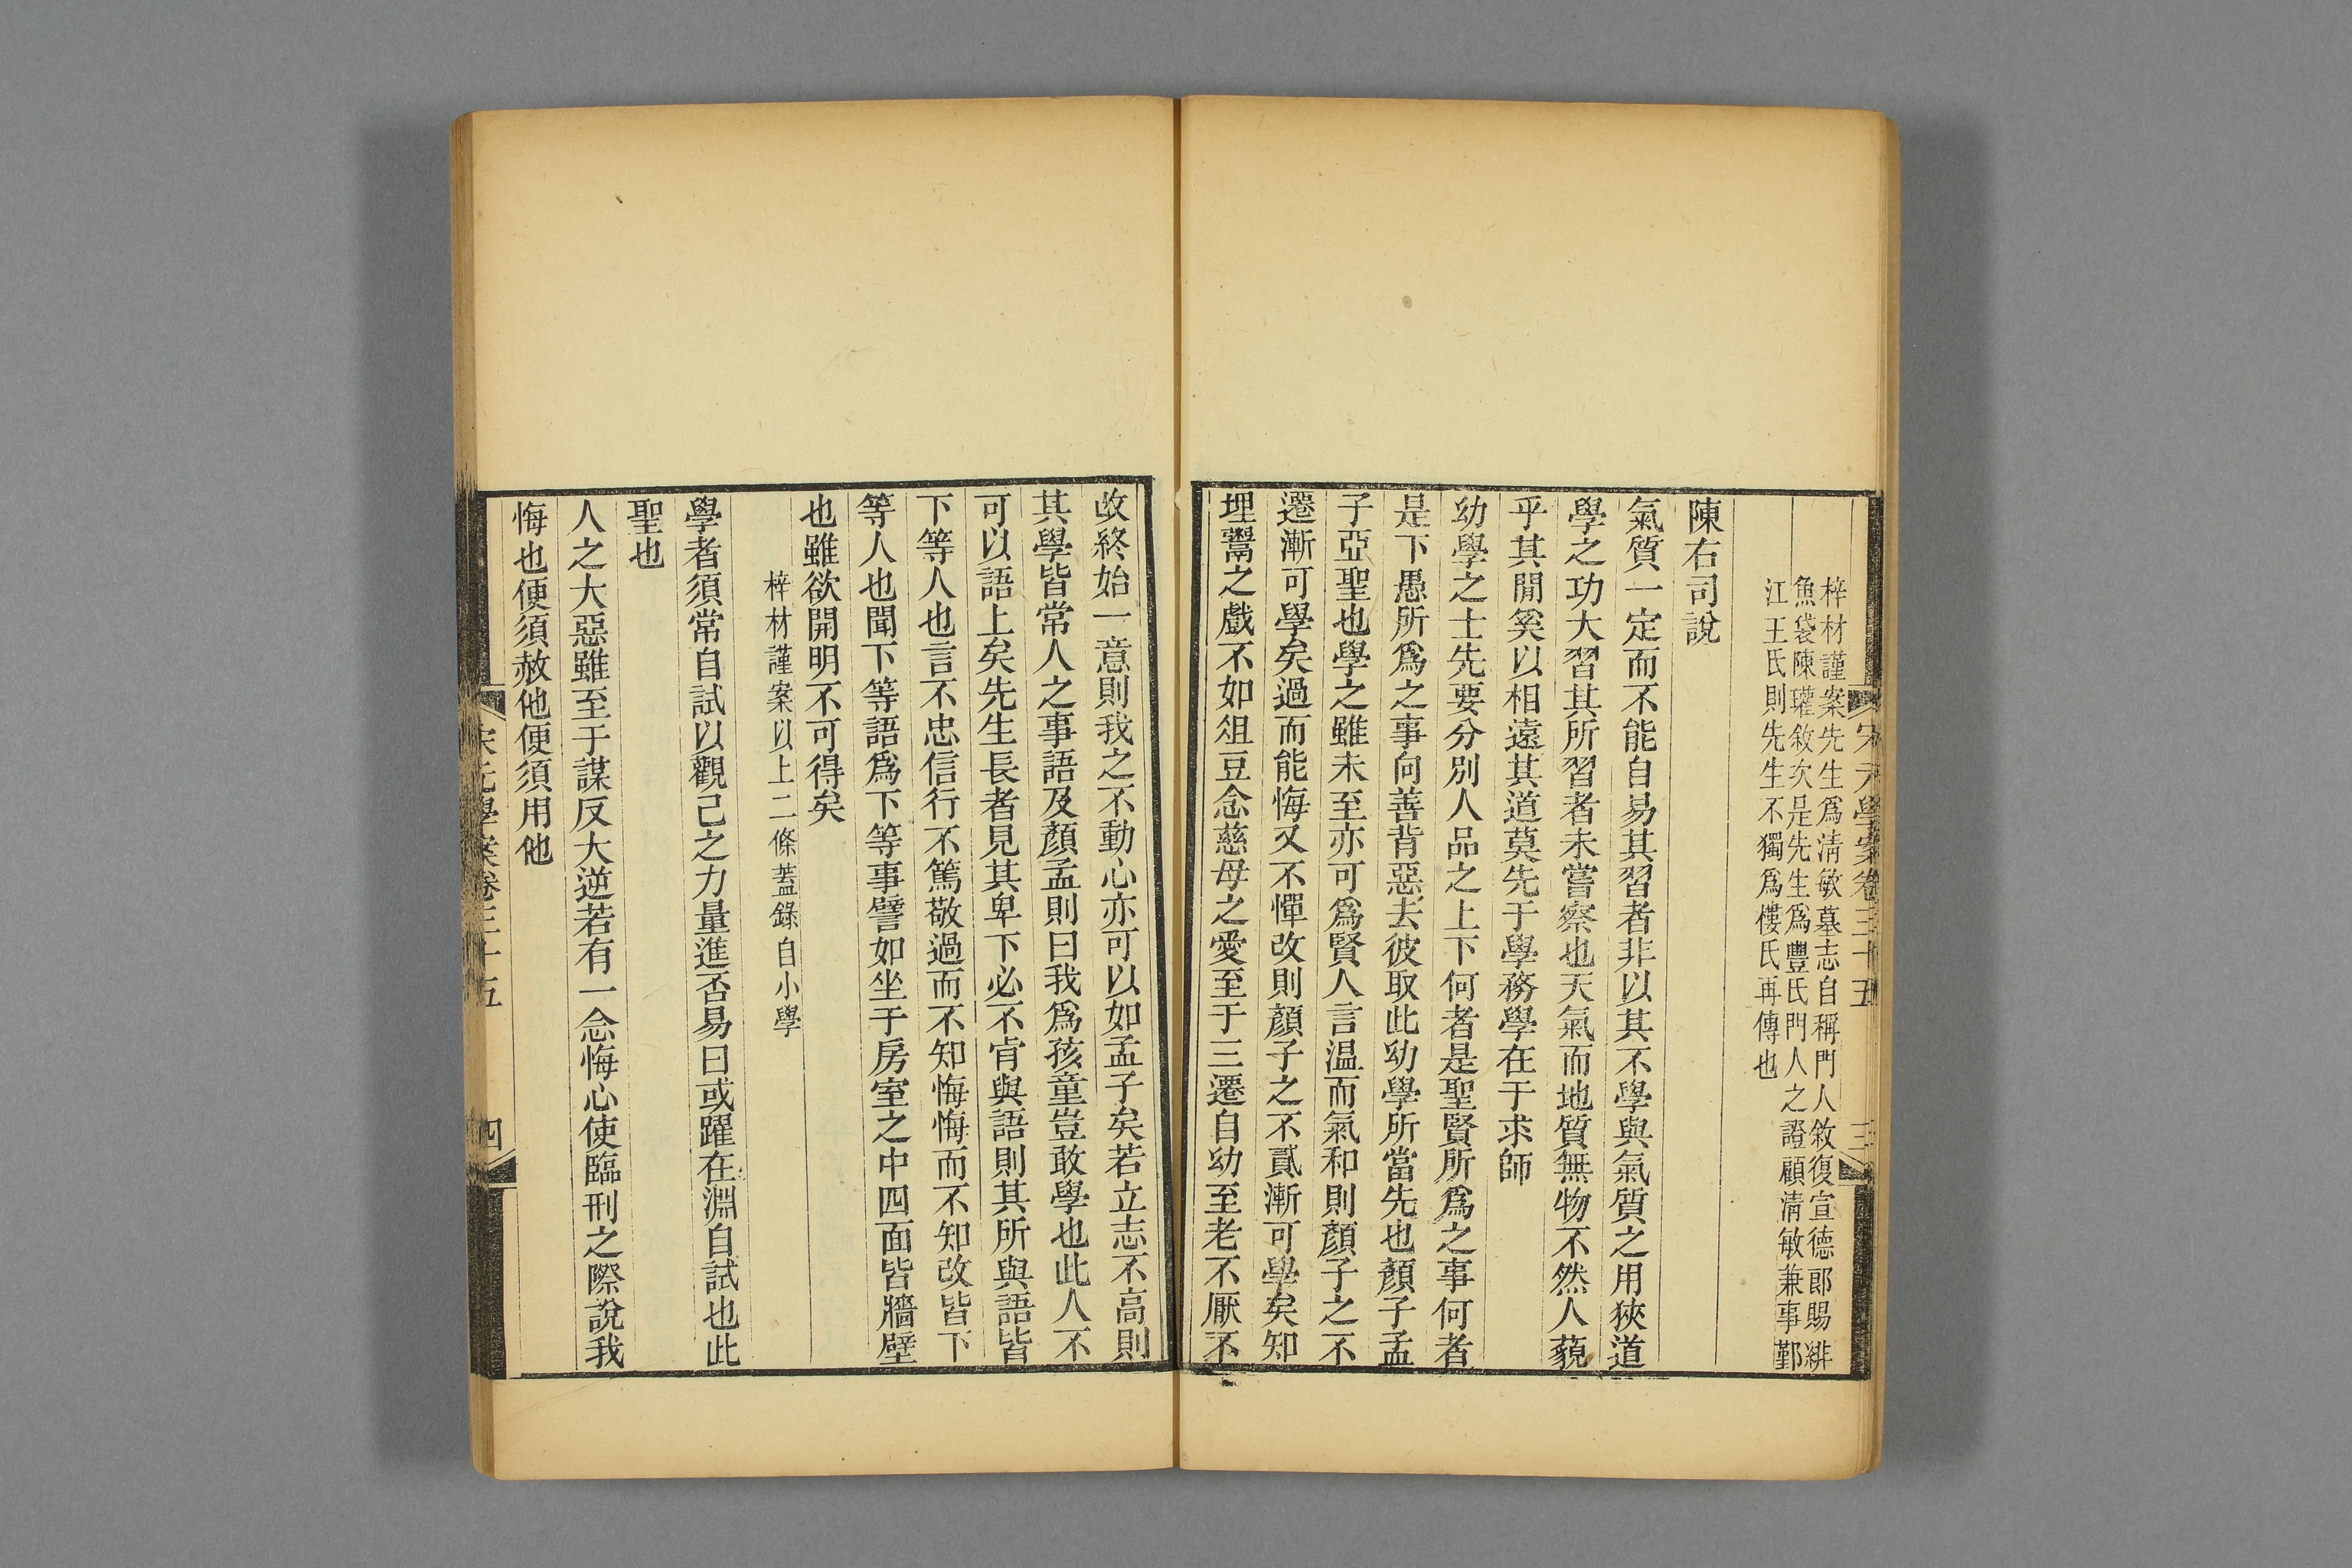 宋元學案卷三十五
三
梓材謹案先生爲淸敏墓志自稱門人敘復宣德郎賜緋
魚袋陳瓘敘次是先生爲豐氏門人之證顧淸敏兼事鄞
江王氏則先生不獨爲樓氏再傳也
陳右司說
氣質一定而不能自易其習者非以其不學與氣質之用狹道
學之功大習其所習者未嘗察也天氣而地質無物不然人藐
乎其閒奚以相遠其道莫先于學務學在于求師
幼學之士先要分別人品之上下何者是聖賢所爲之事何者
是下愚所爲之事向善背惡去彼取此幼學所當先也顏子孟
子亞聖也學之雖未至亦可爲賢人言溫而氣和則顏子之不
遷漸可學矣過而能悔又不憚改則顏子之不貳漸可學矣知
埋鬻之戲不如俎豆念慈母之愛至于三遷自幼至老不厭不
改終始一意則我之不動心亦可以如孟子矣若立志不高則
其學皆常人之事語及顏孟則曰我爲孩童豈敢學也此人不
可以語上矣先生長者見其卑下必不肯與語則其所與語皆
下等人也言不忠信行不篤敬過而不知悔悔而不知改皆下
等人也聞下等語爲下等事譬如坐于房室之中四面皆牆壁
也雖欲開明不可得矣
梓材謹案以上二條葢錄自小學
學者須常自試以觀己之力量進否易曰或躍在淵自試也此
聖也
人之大惡雖至于謀反大逆若有一念悔心使臨刑之際說我
悔也便須赦他便須用他
宋元學案卷三十五
四